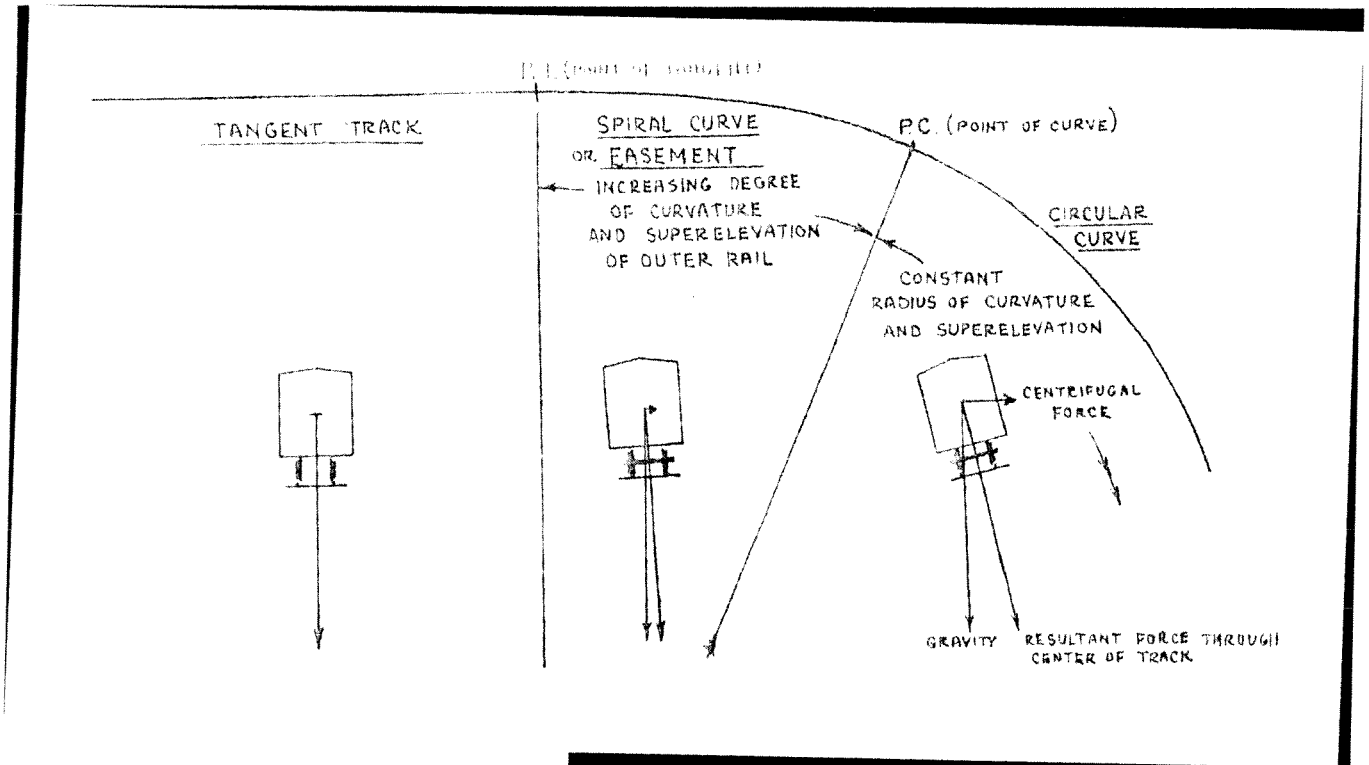 P.T. (POINT OF TANGENT)
TANGENT TRACK
SPIRAL CURVE
OR EASEMENT
INCREASING DEGREE
OF CURVATURE
AND SUPERELEVATION
OF OUTER RAIL
P.C. (POINT OF CURVE)
CIRCULAR
CURVE
CONSTANT
RADIUS OF CURVATURE
AND SUPERELEVATION
CENTRIFUGAL
FORCE
GRAVITY
RESULTANT FORCE THROUGH
CENTER OF TRACK